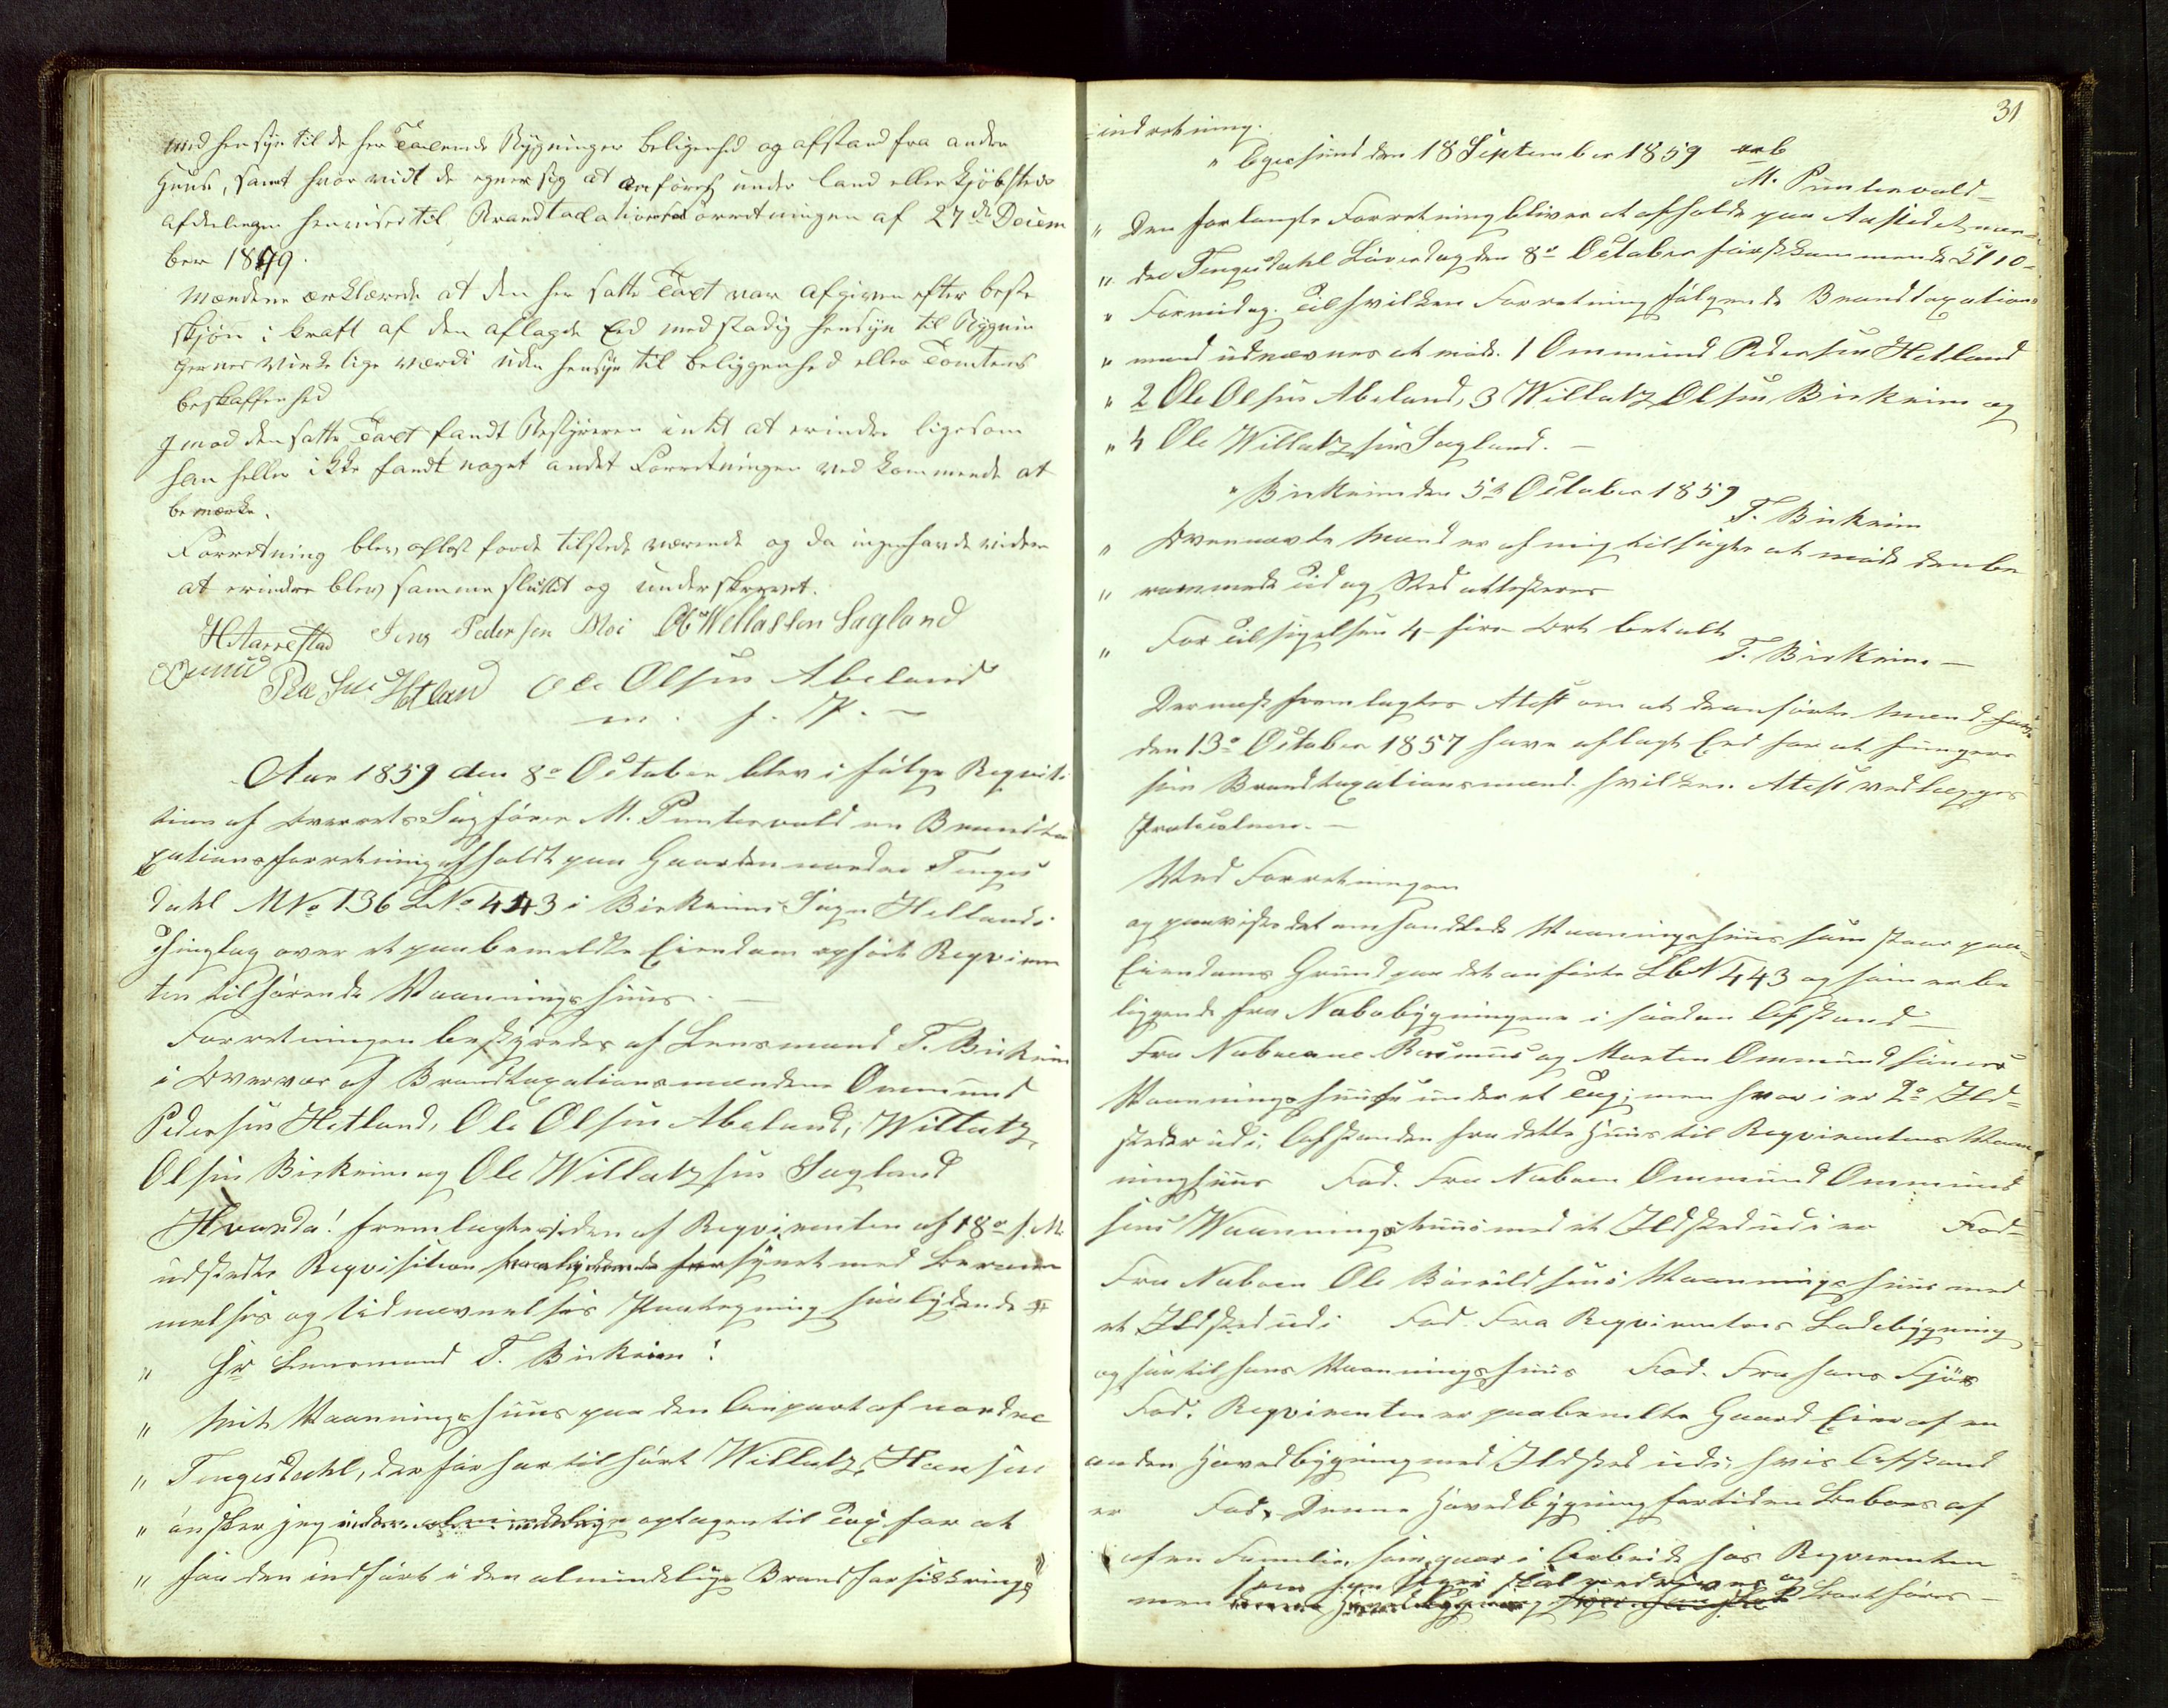 med hensyn til de her Taxerede Bygninger beligenhed og afstand fra andre
Huuse, samt hvor vidt de egner sig at anføres under land eller kjøbsteds
afdelingen henvises til Brandtaxationsforretningen af 27de Decem
ber 1849.
Mændene erklærede at den her satte Taxt var afgiven efter beste
skjøn i kraft af den aflagde Eed med stadig hensyn til Bygnin
gernes virkelige værdi uden hensyn til beliggenhed eller Tomtens
beskaffenhed
Imod den satte Taxt fandt Bestyreren intet at erindre ligesom
han heller ikke fandt noget andet Forretningen ved kommende at
bemærke.
Forretning blev oplæst for de tilstede værende og da ingen havde videre
at erindre blev samme sluttet og underskrevet.
H Aarrestad Jens Pedersen Moi Ole Willassen Sagland
Omund Peder Hetland Ole Olsen Abeland
m. f. P.
Aar 1859 den 8de October blev i følge Reqvisi
tion af Overrets Sagfører M. Puntervold en Brandta
xationsforretning afholdt paa Gaarden nordre Tenges
dahl M No 136 L No 443 i Birkrims Sogn Hetlands
Thinglag over et paa bemeldte Eiendom opført Reqviren
ten tilhørende Vaaningshuus. —
Forretningen bestyredes af Lensmand T. Birkrim
i Overvær af Brandtaxationsmændene Ommund
Pedersen Hetland, Ole Olsen Abeland, Willatz
Olsen Birkrim og Ole Willatzsen Sagland
Hvorda! fremlagtes den af Reqvirenten af 18de f. M.
udstedte Reqvisition forsynet med Beram
melses og Udnævnelses Paategning saalydende
" Hr Lensmand T. Birkrim!
" Mit Vaaningshuus paa den Anpart af nordre
" Tengesdahl, der før har tilhørt Willatz Hansen
" ønsker jeg optagen til Taxt for at
" faa den indført i den almindelige Brandforsikrings
31
indretning.
" Egersund den 18 September 1859 ærb
M. Puntervold
" Den forlangte Forretning bliver at afholde paa Aastedet nor
" dre Tengesdahl Løverdag den 8de October førstkommende Kl 10
" Formidag. Til hvilken Forretning følgende Brandtaxations
" mænd udnævnes at møde. 1 Ommund Pedersen Hetland
" 2 Ole Olsen Abeland, 3 Willatz Olsen Birkrim og
" 4 Ole Willatzsen Sagland. —
" Birkrim den 5te October 1859
T. Birkrim
" Ovennævte Mænd er af mig tilsagte at møde den be
" rammede Tid og Sted attesteres
" For Tilsigelsen 4 fire Ort betalt
T. Birkrim —
Dernæst fremlagtes Atest om at de anførte Mænd
den 13de October 1857 have aflagt Eed for at fungere
som Brandtaxationsmænd. hvilken Atest vedlægges
Protocolen. —
Ved Forretningen
og paavist det omhandlede Vaaningshuus som staar paa
Eiendoms Grund paa det anførte Lb N 443 og som er be
liggende fra Nabobygningene i saadan Afstand —
Fra Naboerne Rasmus og Morten Ommundsens
Vaaningshuuse under et Tag; men hvor i er 2de Ild
steder udi; Afstanden fra dette Huus til Reqvirentens Vaa
ninghuus Fod. Fra Naboen Ommund Ommund
sens Vaaningshuus med et Ildsted udi er Fod
Fra Naboen Ole Vaaningshuus med
et Ildsted udi Fod. Fra Reqvirentens Ladebygning
og saa til hans Vaaningshuus Fod. Fra hans Fjøs
Fod. Reqvirenten er paa bemelte Gaard Eier af en
anden Hovedbygning med Ildsted udi, hvis Afstand
er Fod, Denne Hovedbygning for tiden Beboes af
af en Familie, som gaar i Arbeide hos Reqvirenten
men som skal nedrives og bortføres —